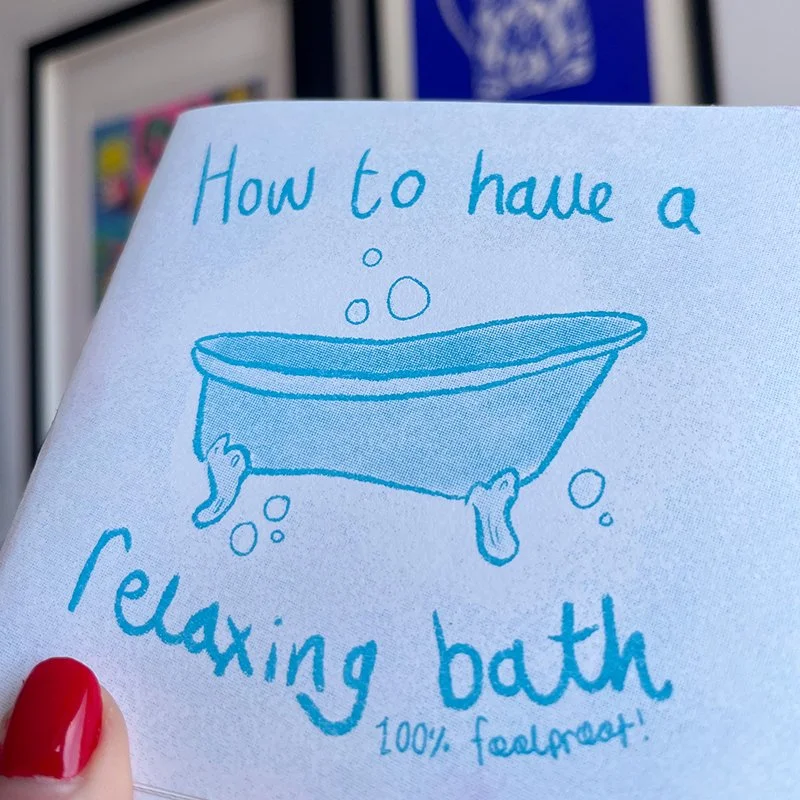 How to have a
relaxing bath
100% foolproof!